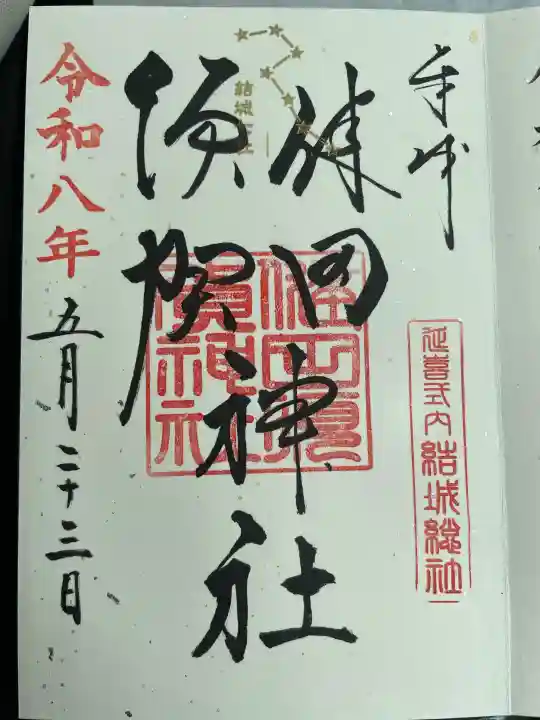 奉拝
延喜式内 結城総社
健田
須賀
神社
健田須賀神社
結城
令和八年五月二十三日